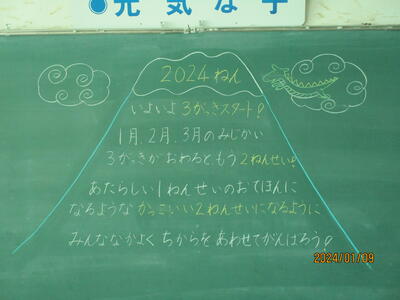 ●元気な子
2024ねん
いよいよ3がっきスタート!
1月、2月、3月のみじかい
3がっきがおわるともう2ねんせい!
あたらしい1ねんせいのおてほんに
なるようなかっこいい2ねんせいになるように
みんななかよくちからをあわせてがんばろう!
2024/01/09